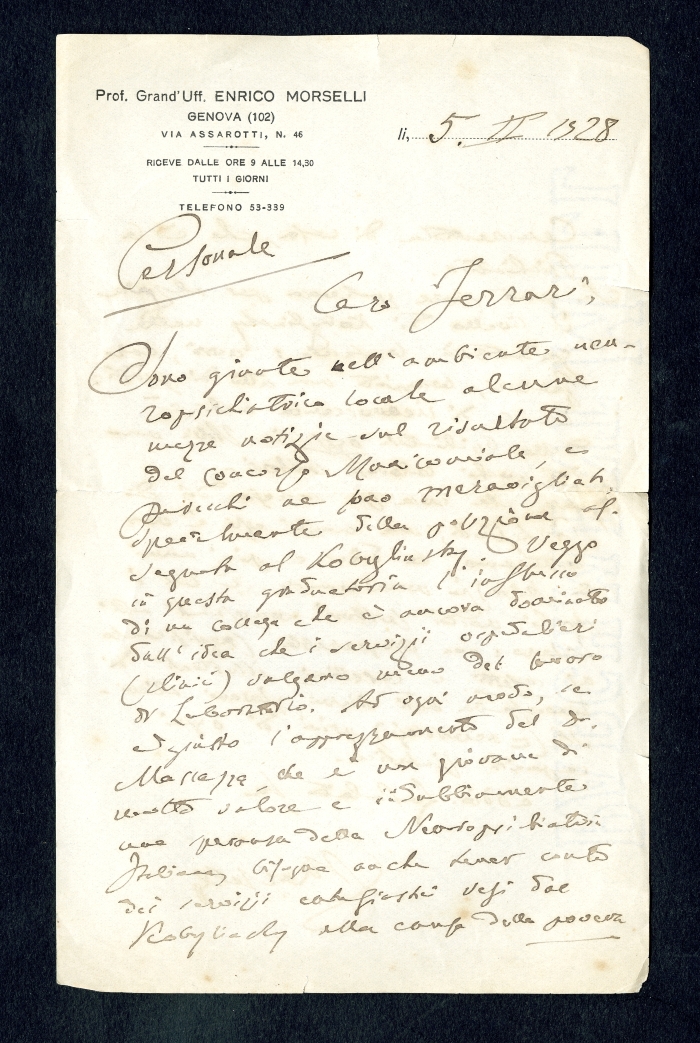 Prof. Grand'Uff. ENRICO MORSELLI
GENOVA (102)
VIA ASSAROTTI, N. 46
RICEVE DALLE ORE 9 ALLE 14,30
TUTTI I GIORNI
TELEFONO 53-339
li, 5. II 1928
Personale
Caro Ferrari,
Sono giunte nell'ambiente neu-
ropsichiatrico locale alcune
mezze notizie sul risultato
del concorso Manicomiale, e
parecchi ne sono meravigliati,
specialmente della posizione as-
segnata al Kobylinsky. Veggo
in questa graduatoria l'influsso
di un collega che è ancora dominato
dall'idea che i servizii ospedalieri
(clinici) valgano meno del lavoro
di Laboratorio. Ad ogni modo, se
è giusto l'apprezzamento del Dr.
che è un giovane di
molto valore e indubbiamente
una speranza della Neuropsichiatria
Italiana, bisogna anche tener conto
dei servizii resi dal
Kobylinsky alla causa della povera